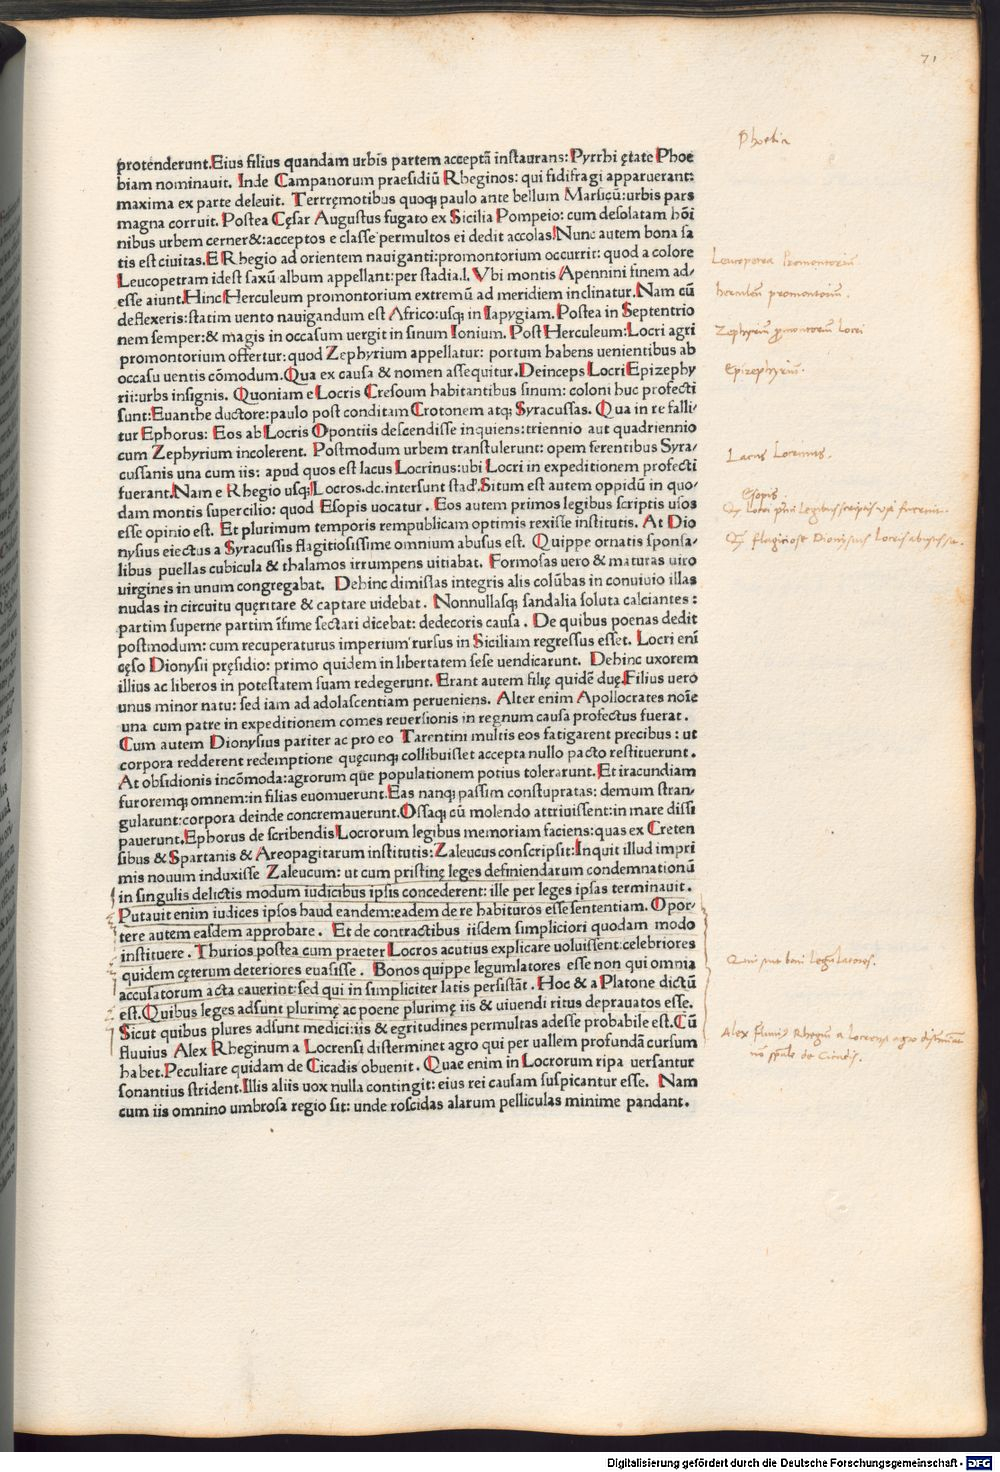 71
Phoebia
protenderunt.Eius filius quandam urbis partem acceptā instaurans:Pyrrhi ętate Phoe
biam nominauit. Inde Campanorum praesidiū Rheginos: qui fidifragi apparuerant:
maxima ex parte deleuit. Terręmotibus quoq; paulo ante bellum Marsicū:urbis pars
magna corruit. Postea Cęsar Augustus fugato ex Sicilia Pompeio: cum desolatam hōi
nibus urbem cerner&:acceptos e classe permultos ei dedit accolas.Nunc autem bona sa
tis est ciuitas.E Rhegio ad orientem nauiganti:promontorium occurrit: quod a colore
Leucopetra Promontoriū
Leucopetram idest saxū album appellant:per stadia.l. Vbi montis Apennini finem ad/
esse aiunt.Hinc Herculeum promontorium extremū ad meridiem inclinatur.Nam cū
herculeū promontoriū.
deflexeris:statim uento nauigandum est Africo:usq; in Iapygiam.Postea in Septentrio
nem semper:& magis in occasum uergit in sinum Ionium. Post Herculeum:Locri agri
Zephyriū promontoriū Locri
promontorium offertur:quod Zephyrium appellatur: portum habens uenientibus ab
occasu uentis cōmodum.Qua ex causa & nomen assequitur.Deinceps Locri Epizephy
Epizephyrii.
rii:urbs insignis. Quoniam e Locris Cresoum habitantibus sinum: coloni huc profecti
sunt:Euanthe ductore:paulo post conditam Crotonem atq; Syracussas. Qua in re falli/
tur Ephorus: Eos ab Locris Opontiis descendisse inquiens:triennio aut quadriennio
cum Zephyrium incolerent. Postmodum urbem transtulerunt: opem ferentibus Syra/
cussanis una cum iis: apud quos est lacus Locrinus:ubi Locri in expeditionem profecti
Lacus Locrinus.
fuerant.Nam e Rhegio usq; Locros.dc.intersunt stad'.Situm est autem oppidū in quo/
Esopis.
dam montis supercilio: quod Esopis uocatur. Eos autem primos legibus scriptis usos
esse opinio est. Et plurimum temporis rempublicam optimis rexisse institutis. At Dio
nysius eiectus a Syracussis flagitiosissime omnium abusus est. Quippe ornatis sponsa/
libus puellas cubicula & thalamos irrumpens uitiabat. Formosas uero & maturas uiro
uirgines in unum congregabat. Dehinc dimissas integris alis colūbas in conuiuio illas
nudas in circuitu quęritare & captare uidebat. Nonnullasq; sandalia soluta calciantes:
partim superne partim īfime sectari dicebat: dedecoris causa. De quibus poenas dedit
postmodum: cum recuperaturus imperium rursus in Siciliam regressus esset. Locri enī
cęso Dionysii pręsidio: primo quidem in libertatem sese uendicarunt. Dehinc uxorem
illius ac liberos in potestatem suam redegerunt. Erant autem filię quidē duę.Filius uero
unus minor natu: sed iam ad adolascentiam perueniens. Alter enim Apollocrates noīe
una cum patre in expeditionem comes reuersionis in regnum causa profectus fuerat.
Cum autem Dionysius pariter ac pro eo Tarentini multis eos fatigarent precibus: ut
corpora redderent redemptione quęcunq; collibuisset accepta nullo pacto restituerunt.
At obsidionis incōmoda:agrorum que populationem potius tolerarunt.Et iracundiam
furoremq; omnem:in filias euomuerunt.Eas nanq; passim constupratas: demum stran/
gularunt:corpora deinde concremauerunt.Ossaq; cū molendo attriuissent:in mare dissi
pauerunt.Ephorus de scribendis Locrorum legibus memoriam faciens:quas ex Creten
sibus & Spartanis & Areopagitarum institutis:Zaleucus conscripsit:Inquit illud impri
mis nouum induxisse Zaleucum: ut cum pristinę leges definiendarum condemnationū
in singulis delictis modum iudicibus ipsis concederent: ille per leges ipsas terminauit.
Putauit enim iudices ipsos haud eandem:eadem de re habituros esse sententiam. Opor/
tere autem easdem approbare. Et de contractibus iisdem simpliciori quodam modo
instituere. Thurios postea cum praeter Locros acutius explicare uoluissent:celebriores
Qui sint boni legū latores.
quidem cęterum deteriores euasisse. Bonos quippe legumlatores esse non qui omnia
accusatorum acta cauerint:sed qui in simpliciter latis persistāt. Hoc & a Platone dictū
est.Quibus leges adsunt plurimę ac poene plurimę iis & uiuendi ritus deprauatos esse.
Sicut quibus plures adsunt medici:iis & egritudines permultas adesse probabile est.Cū
fluuius Alex Rheginum a Locrensi disterminet agro qui per uallem profundā cursum
habet.Peculiare quidam de Cicadis obuenit. Quae enim in Locrorum ripa uersantur
sonantius strident.Illis aliis uox nulla contingit: eius rei causam suspicantur esse. Nam
cum iis omnino umbrosa regio sit: unde roscidas alarum pelliculas minime pandant.
Digitalisierung gefördert durch die Deutsche Forschungsgemeinschaft - DFG